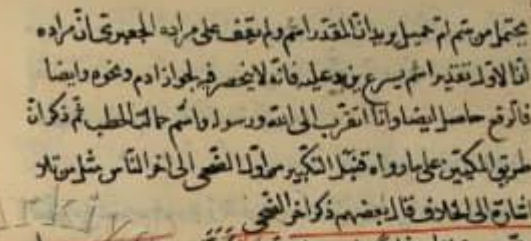 يحتمل من ثم ام حميل يريد ان المقدر اسم ولم يقف على مراد الجعبرى فان مراده
ان الاولى تقدير اسم يسرع بن يد عليه فانه لا ينحصر فيه لجواز ادم ونحوه وايضا
فالرفع حاصل ايضا وانا اتقرب الى الله ورسوله واسم حمالة الحطب ثم ذكر ان
طريق المكيين على ما رواه قنبل التكبير من اول الضحى الى اخر الناس مثل من تلا
اشارة الى الخلاف قال بعضهم ذكر اخر الضحى